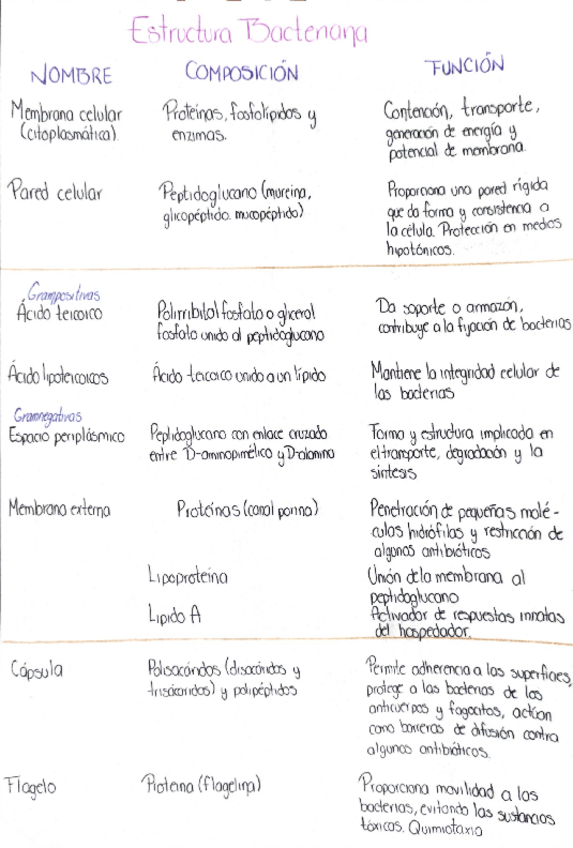 Estructura Bacteriana
NOMBRE COMPOSICIÓN FUNCIÓN
Membrana celular
(citoplasmática).
Proteínas, fosfolípidos y
enzimas.
Contención, transporte,
generación de energía y
potencial de membrana.
Pared celular
Peptidoglucano (mureína,
glicopéptido. mucopéptido)
Proporciona una pared rígida
que da forma y consistencia a
la célula. Protección en medios
hipotónicos.
Grampositivas
Ácido teicoico
Polirribitol fosfato o glicerol
fosfato unido al peptidoglucano
Da soporte o armazón,
contribuye a la fijación de bacterias
Ácido lipoteicoicos
Ácido teicoico unido a un lípido
Mantiene la integridad celular de
las bacterias
Gramnegativas
Espacio periplásmico
Peptidoglucano con enlace cruzado
entre D-aminopimélico y D-alanina
Forma y estructura implicada en
el transporte, degradación y la
síntesis
Membrana externa
Proteínas (canal porina)
Penetración de pequeñas molé-
culas hidrófilas y restricción de
algunos antibióticos
Lipoproteína
Unión de la membrana al
peptidoglucano
Lípido A
Activador de respuestas innatas
del hospedador.
Cápsula
Polisacáridos (disacáridos y
trisacáridos) y polipéptidos
Permite adherencia a las superficies,
protege a las bacterias de los
anticuerpos y fagocitos, actúan
como barreras de difusión contra
algunos antibióticos.
Flagelo
Proteína (flagelina)
Proporciona movilidad a las
bacterias, evitando las sustancias
tóxicas. Quimiotaxia